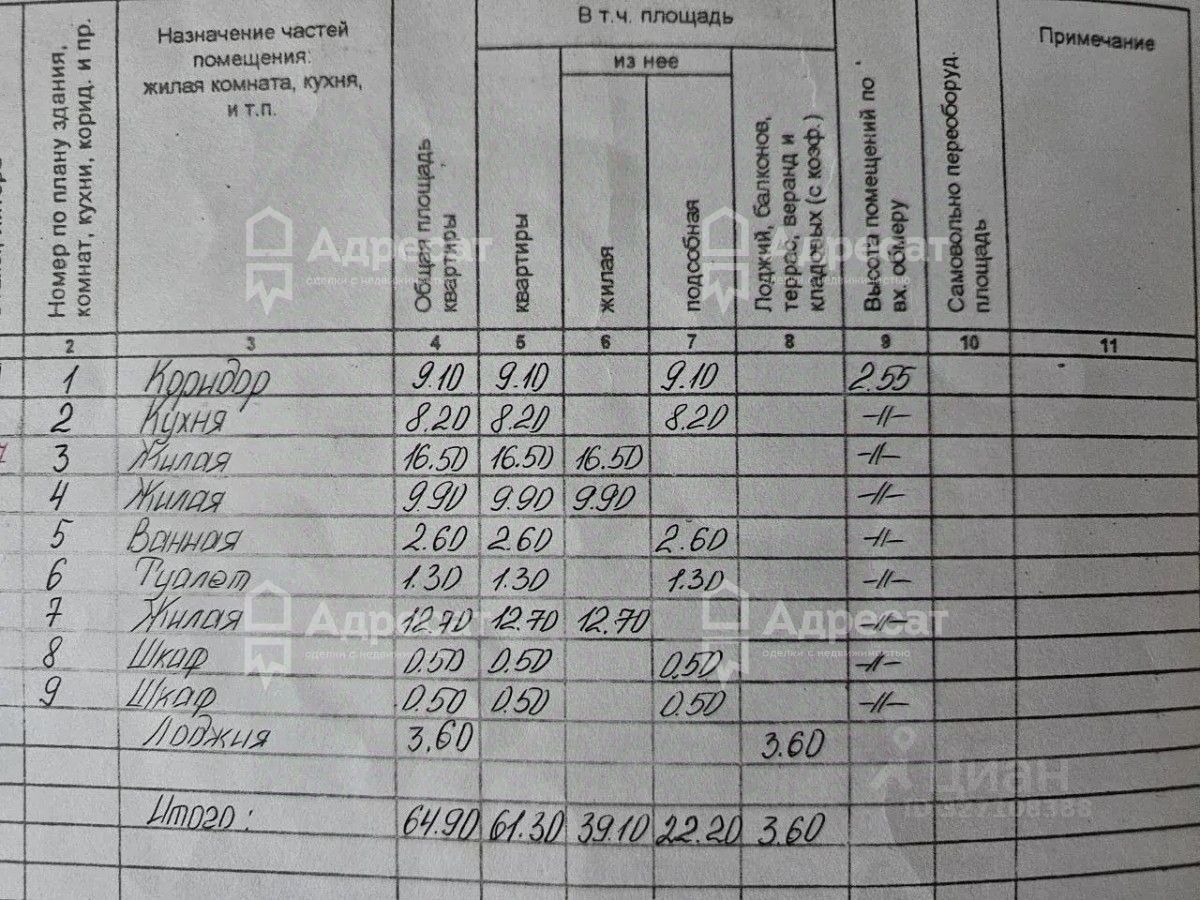 Номер по плану здания,
комнат, кухни, корид. и пр.
Назначение частей
помещения:
жилая комната, кухня,
и т.п.
Общая площадь
квартиры
В т.ч. площадь
квартиры
из нее
жилая
подсобная
Лоджий, балконов,
террас, веранд и
кладовых (с коэф.)
Высота помещений по
вх. обмеру
Самовольно переоборуд.
площадь
Примечание
2 3 4 5 6 7 8 9 10 11
1 Коридор 9.10 9.10 9.10 2.55
2 Кухня 8.20 8.20 8.20 -//-
3 Жилая 16.50 16.50 16.50 -//-
4 Жилая 9.90 9.90 9.90 -//-
5 Ванная 2.60 2.60 2.60 -//-
6 Туалет 1.30 1.30 1.30 -//-
7 Жилая 12.70 12.70 12.70 -//-
8 Шкаф 0.50 0.50 0.50 -//-
9 Шкаф 0.50 0.50 0.50 -//-
Лоджия 3.60 3.60
Итого: 64.90 61.30 39.10 22.20 3.60
Адресат
сделки с недвижимостью
Адресат
сделки с недвижимостью
Адресат
сделки с недвижимостью
Адресат
сделки с недвижимостью
циан